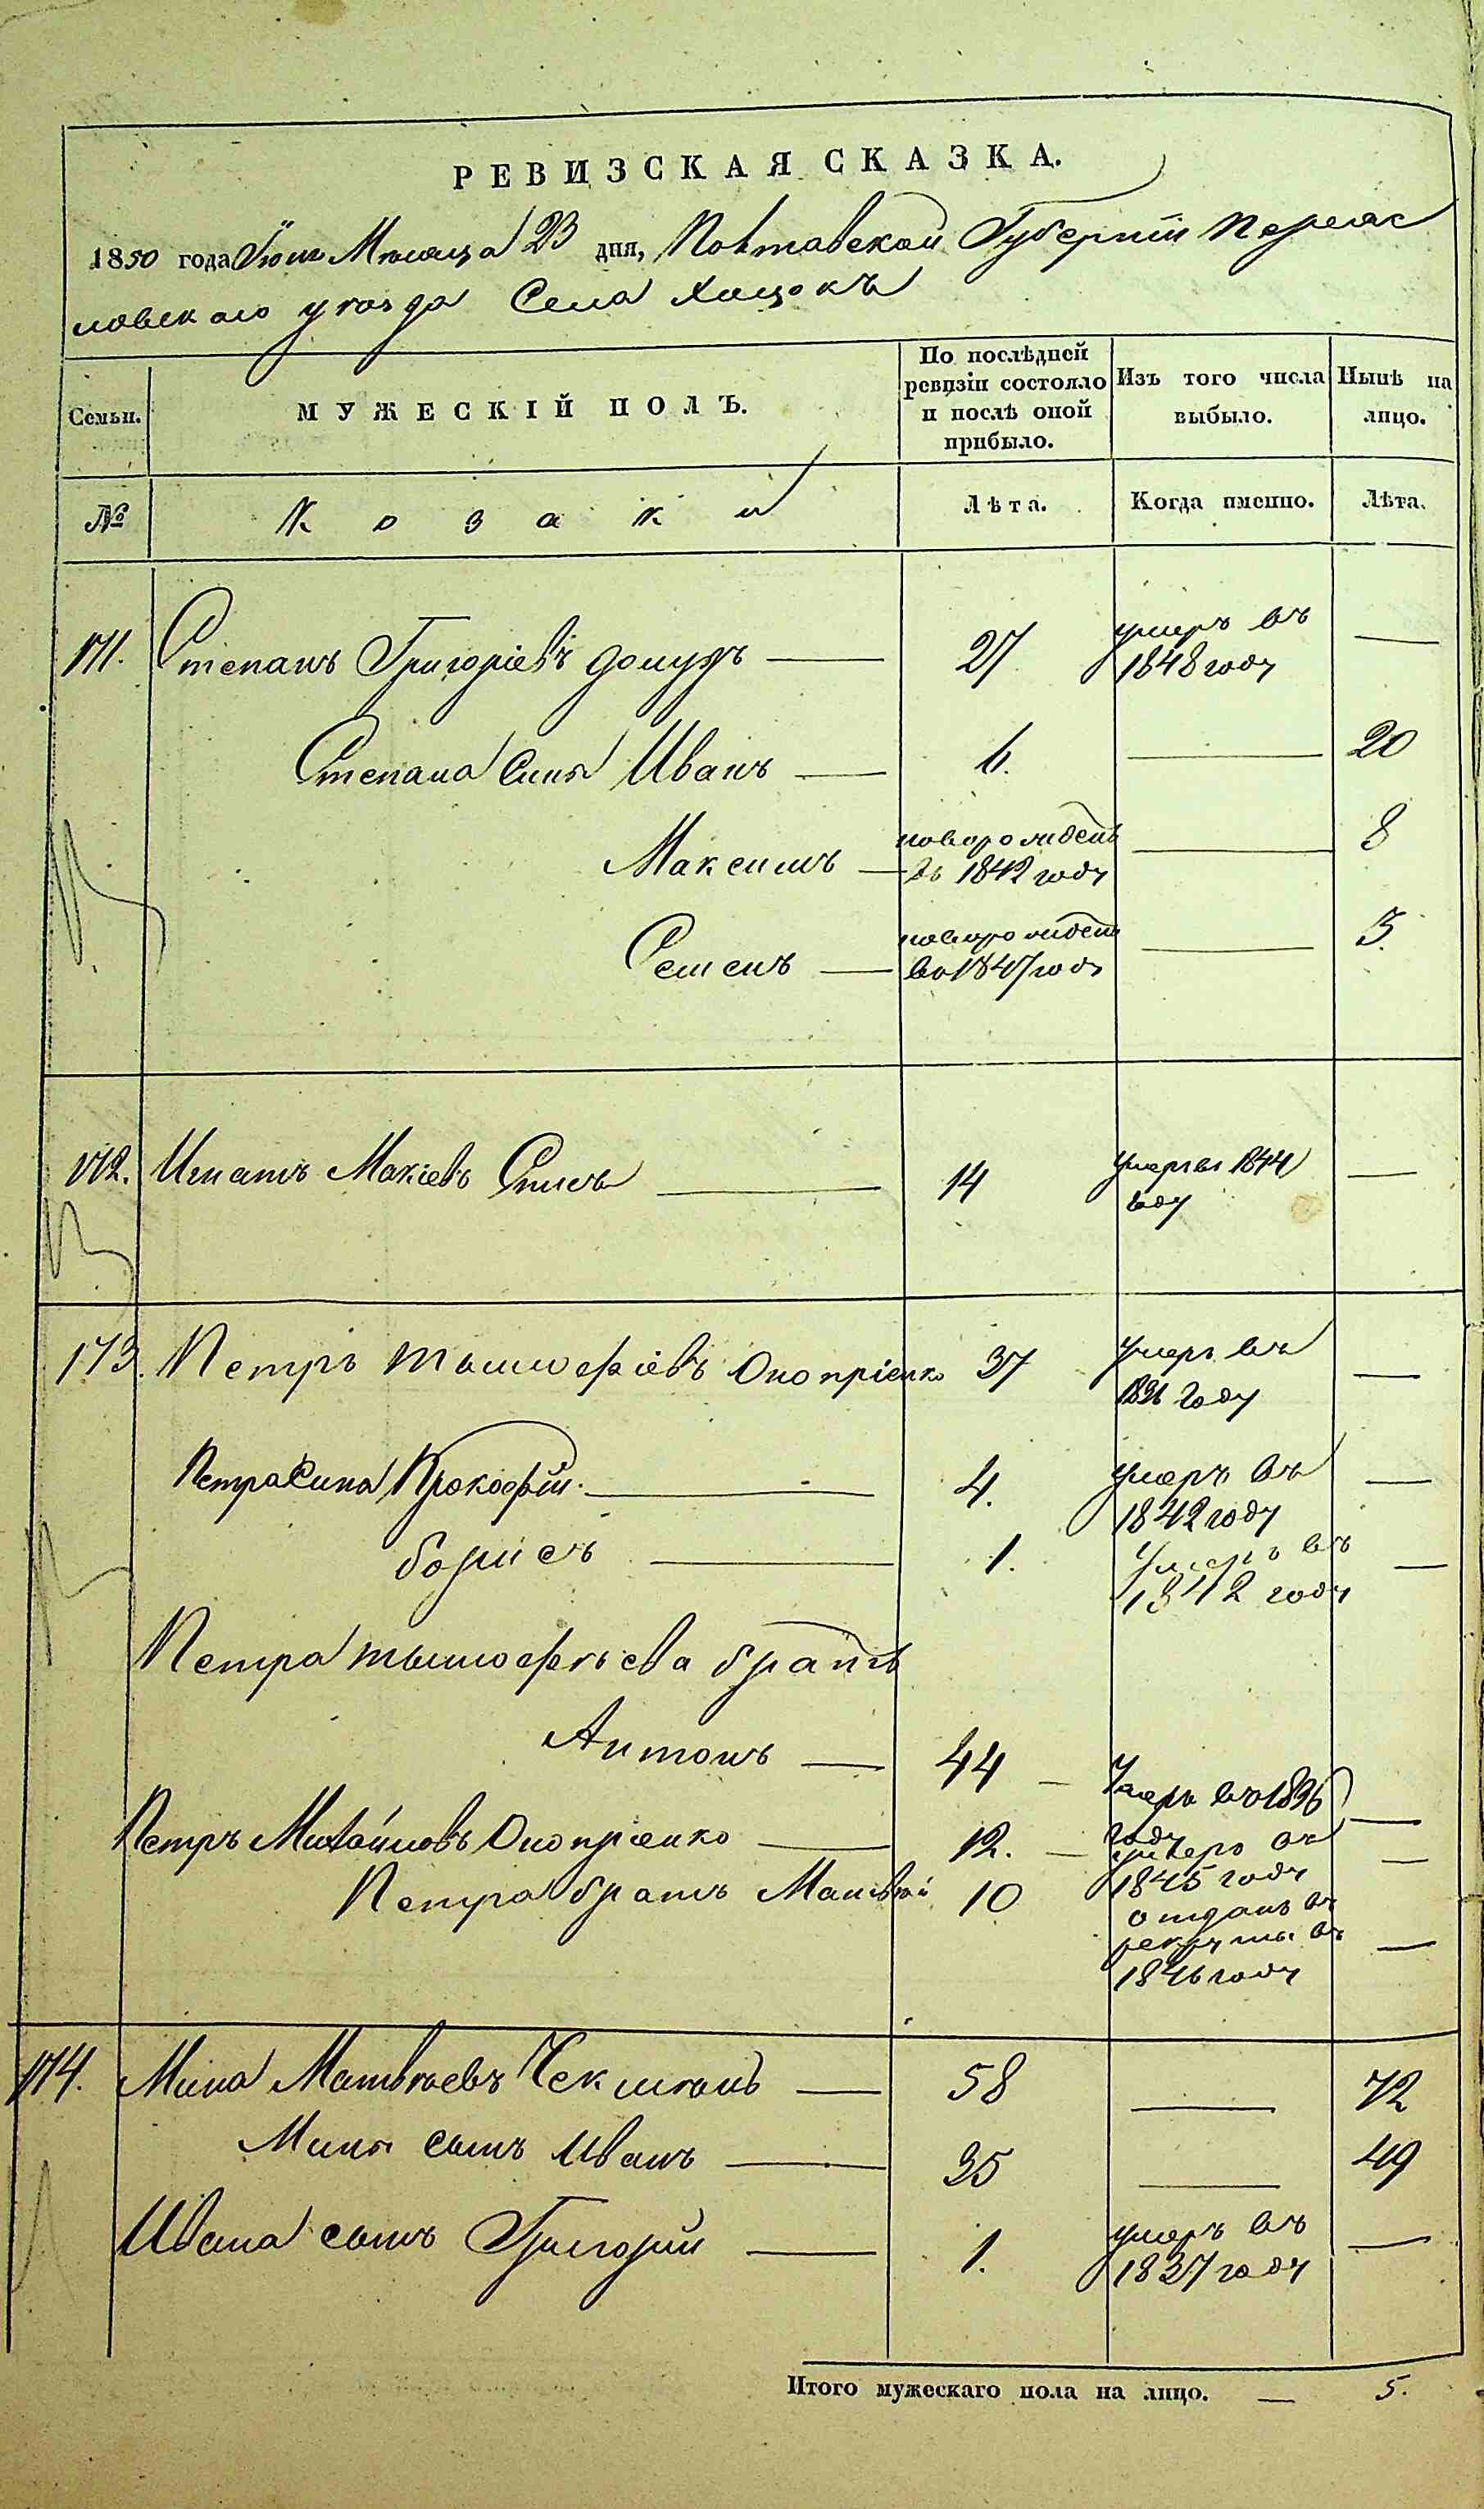 РЕВИЗСКАЯ СКАЗКА.
1850 года Іюня Мѣсяца 23 дня, Полтавской Губерніи Переяс
ловскаго уѣзда Села Хоцокъ
Семьи.
МУЖЕСКІЙ ПОЛЪ.
По послѣдней ревизіи состояло и послѣ оной прибыло.
Изъ того числа выбыло.
Нынѣ на лицо.
№
Козаки
Лѣта.
Когда именно.
Лѣта.
171. Степанъ Григоріевъ — 27 умеръ въ 1848 году —
Степана Сины Иванъ — 6. — 20
Максимъ — новорожденъ въ 1842 году — 8
Семенъ — новорожден во 1847 году — 3.
172. Игнатъ Макіевъ — 14 умеръ въ 1844 году —
173. Петръ Тымофіевъ Онопріенко 37 умеръ въ году —
Петра Сина Прокофій. — 4. умеръ въ 1842 году —
Борисъ — 1. умеръ въ 1842 году —
Петра Тымофѣева братъ
Антонъ — 44 — Умеръ во 1836 году —
Петръ Михайловъ Онопріенко — 12. — умеръ въ 1845 году —
Петра братъ Матвѣй 10 отданъ въ рекруты въ 1846 году —
174. Мина Матвѣевъ — 58 — 72
Мины сынъ Иванъ — 35 — 49
Ивана сынъ Григорій — 1. умеръ въ 1837 году —
Итого мужескаго пола на лицо. — 5.